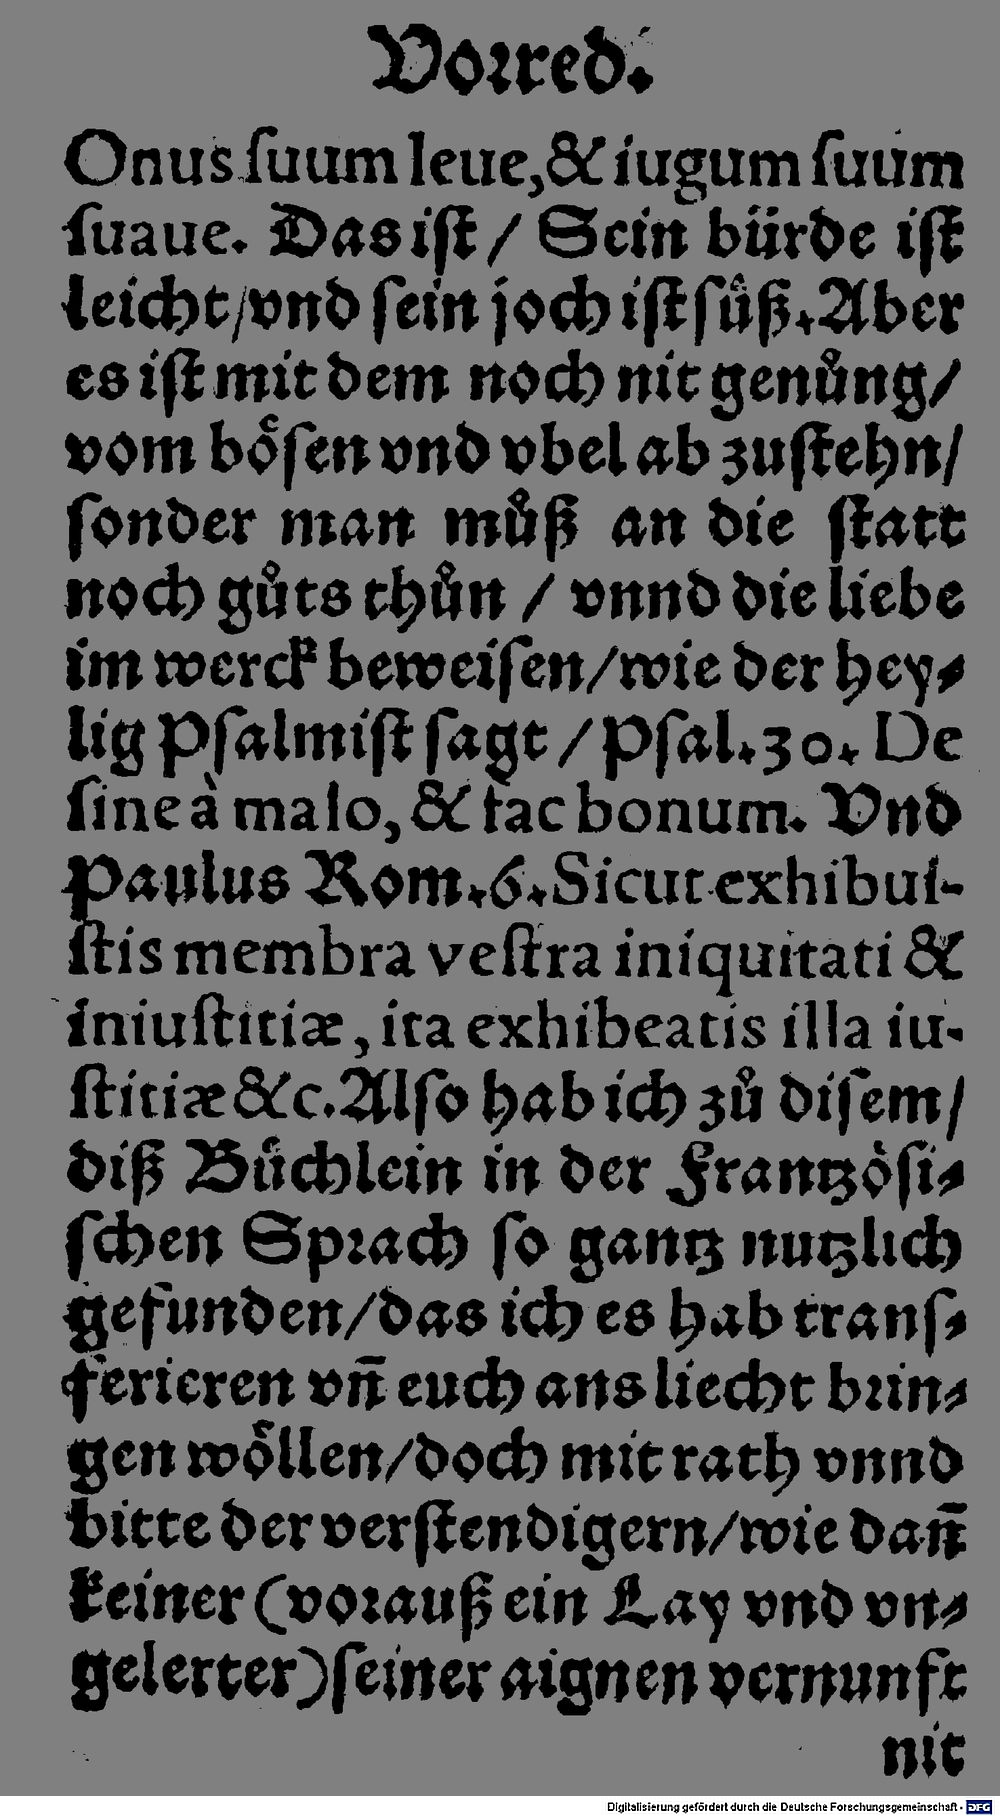 Vorred.
Onus ſuum leue, & iugum ſuum
ſuaue. Das iſt / Sein bürde iſt
leicht / vnd ſein joch iſt ſuͤß. Aber
es iſt mit dem noch nit genuͦng /
vom boͤſen vnd vbel ab zuſtehn /
ſonder man muͦß an die ſtatt
noch guͦts thuͦn / vnnd die liebe
im werck beweiſen / wie der hey⸗
lig Pſalmiſt ſagt / Pſal. 30. De
ſine à malo, & fac bonum. Vnd
Paulus Rom. 6. Sicut exhibui-
ſtis membra veſtra iniquitati &
iniuſtitiæ, ita exhibeatis illa iu-
ſtitiæ &c. Alſo hab ich zuͦ diſem /
diß Buͤchlein in der Frantzoͤſi⸗
ſchen Sprach ſo gantz nutzlich
gefunden / das ich es hab tranſ⸗
ferieren vn̄ euch ans liecht brin⸗
gen woͤllen / doch mit rath vnnd
bitte der verſtendigern / wie dan̄
keiner (vorauß ein Lay vnd vn⸗
gelerter) ſeiner aignen vernunft
nit
Digitalisierung gefördert durch die Deutsche Forschungsgemeinschaft - DFG